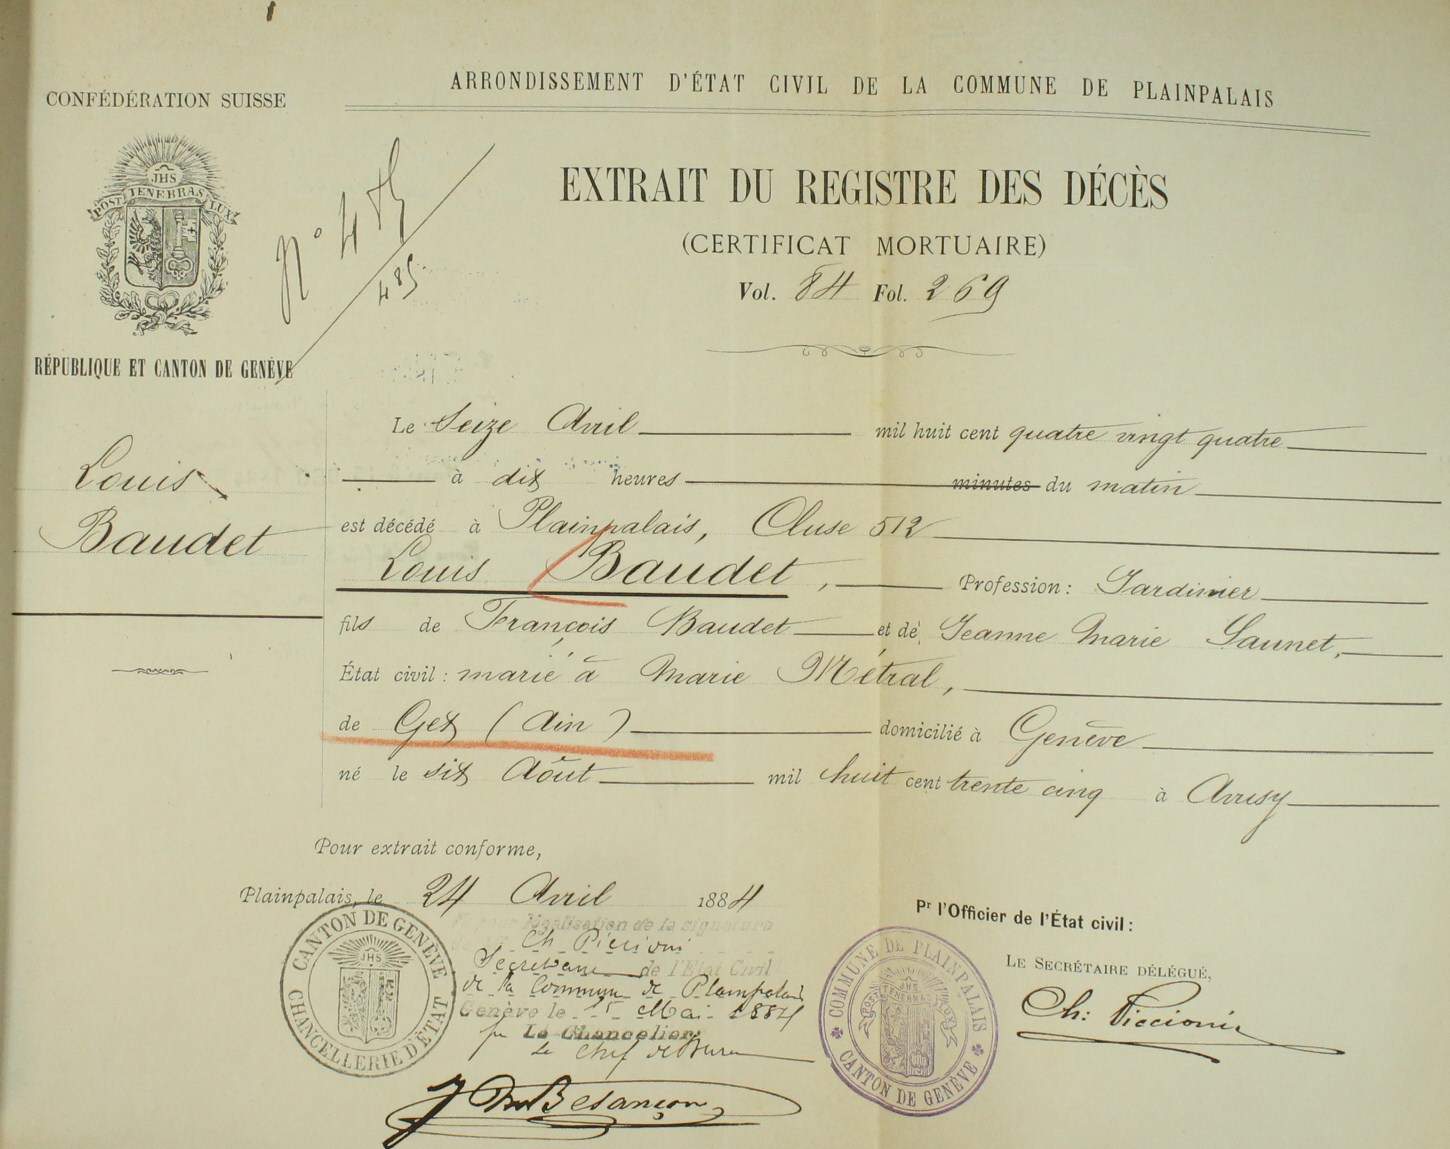 ARRONDISSEMENT D'ÉTAT CIVIL DE LA COMMUNE DE PLAINPALAIS
CONFÉDÉRATION SUISSE
JHS
POST TENEBRAS LUX
RÉPUBLIQUE ET CANTON DE GENÈVE
N°
485
EXTRAIT DU REGISTRE DES DÉCÈS
(CERTIFICAT MORTUAIRE)
Vol. 84 Fol. 269
Louis
Baudet
Le Seize Avril mil huit cent quatre vingt quatre
à dix heures minutes du matin
est décédé à Plainpalais, Cluse 512
Louis Baudet, Profession: Jardinier
fils de François Baudet et de Jeanne Marie Saunet,
État civil: marié à Marie Métral,
de Gex (Ain) domicilié à Genève
né le six Août mil huit cent trente cinq à Avusy
Pour extrait conforme,
Plainpalais, le 24 Avril 1884
légalisation de la signature
Ch. Piccioni
Secrétaire de l'Etat Civil
de la Commune de Plainpalais
Genève le Mai 1884
pr Le Chancelier:
Le Chef de Bureau
Besançon
CANTON DE GENÈVE
JHS
CHANCELLERIE D'ÉTAT
COMMUNE DE PLAINPALAIS
CANTON DE GENÈVE
Pr l'Officier de l'État civil:
LE SECRÉTAIRE DÉLÉGUÉ,
Ch: Piccioni